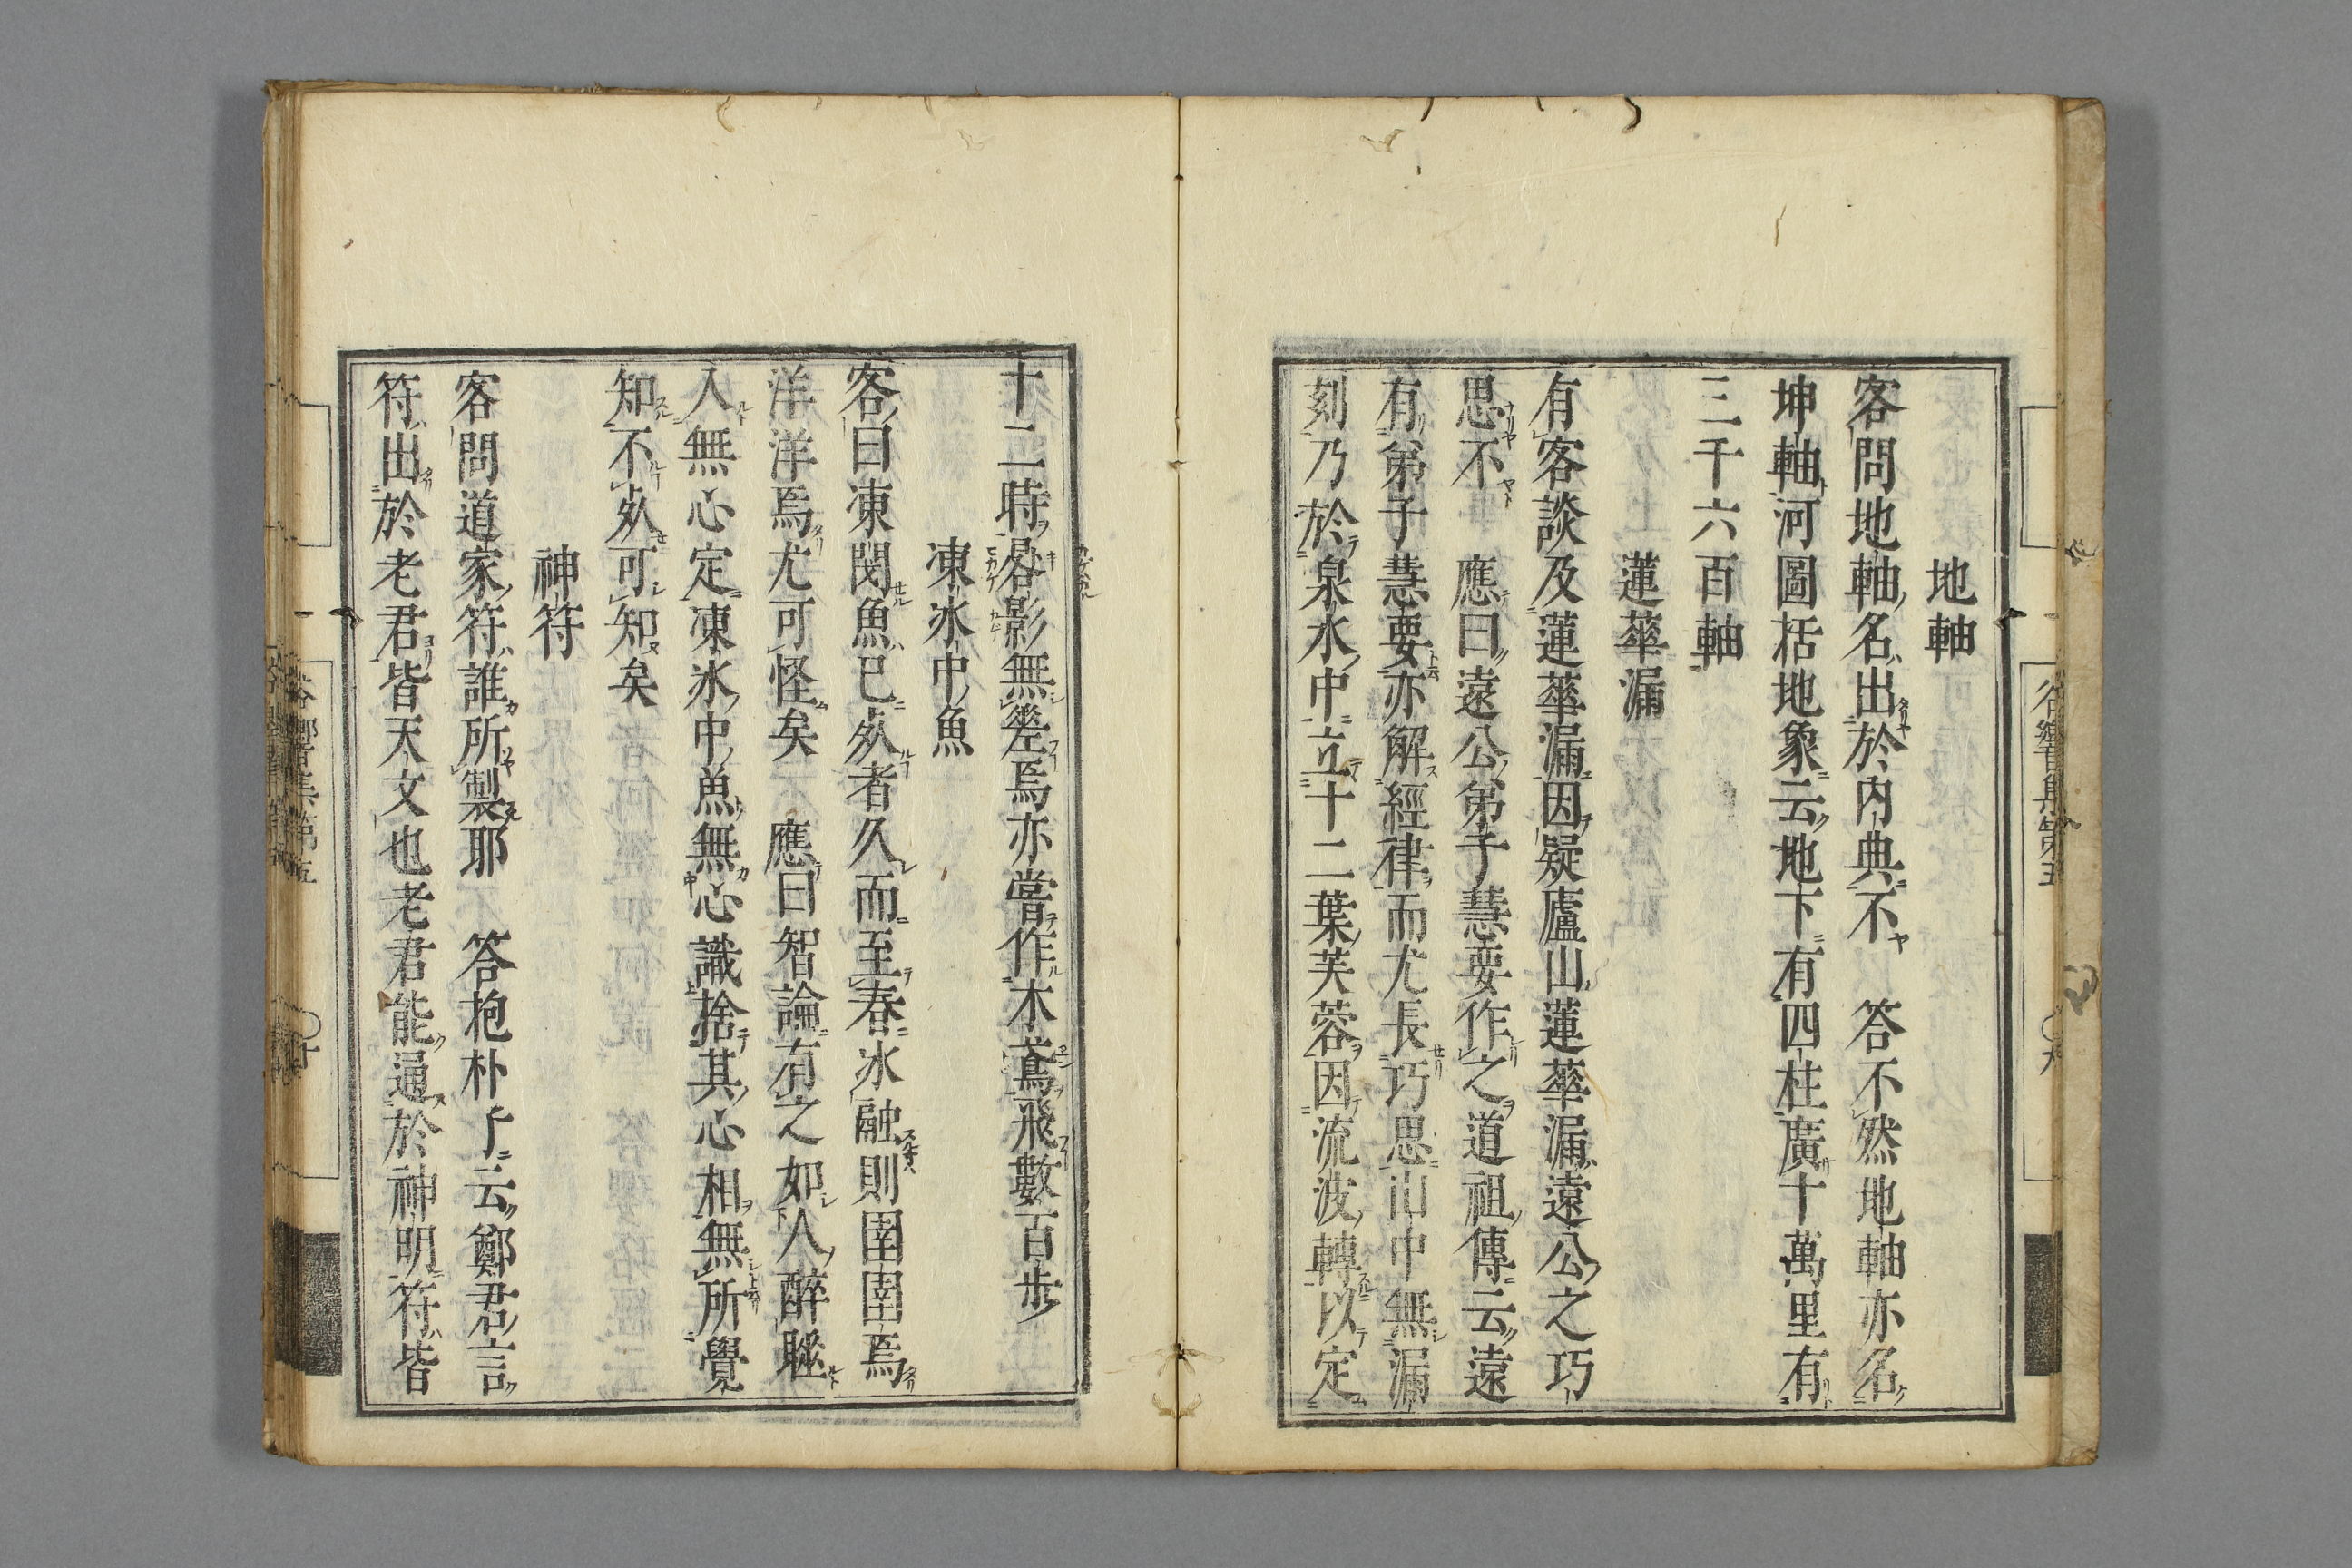 地軸
客問地軸名出於内典不 答不然地軸亦名
坤軸河圖栝地象云地下有四柱廣十萬里有
三千六百軸
蓮華漏
有客談及蓮華漏因疑廬山蓮華漏遠公之巧
思不 應曰遠公弟子慧要作之道祖傳云遠
有弟子慧要亦解經律而尤長巧思山中無漏
刻乃於泉水中立十二葉芙蓉因流波轉以定
十二時晷影無差焉亦嘗作木鳶飛數百步
凍氷中魚
客曰凍閔魚已死者久而至春氷融則圉圉焉
洋洋焉尤可怪矣 應曰智論有之如人醉睡
入無心定凍氷中魚無心識捨其心相無所覺
知不死可知矣
神符
客問道家符誰所製耶 答抱朴子云鄭君言
符出於老君皆天文也老君能通於神明符皆
谷響集第五 九
谷響集第五 十